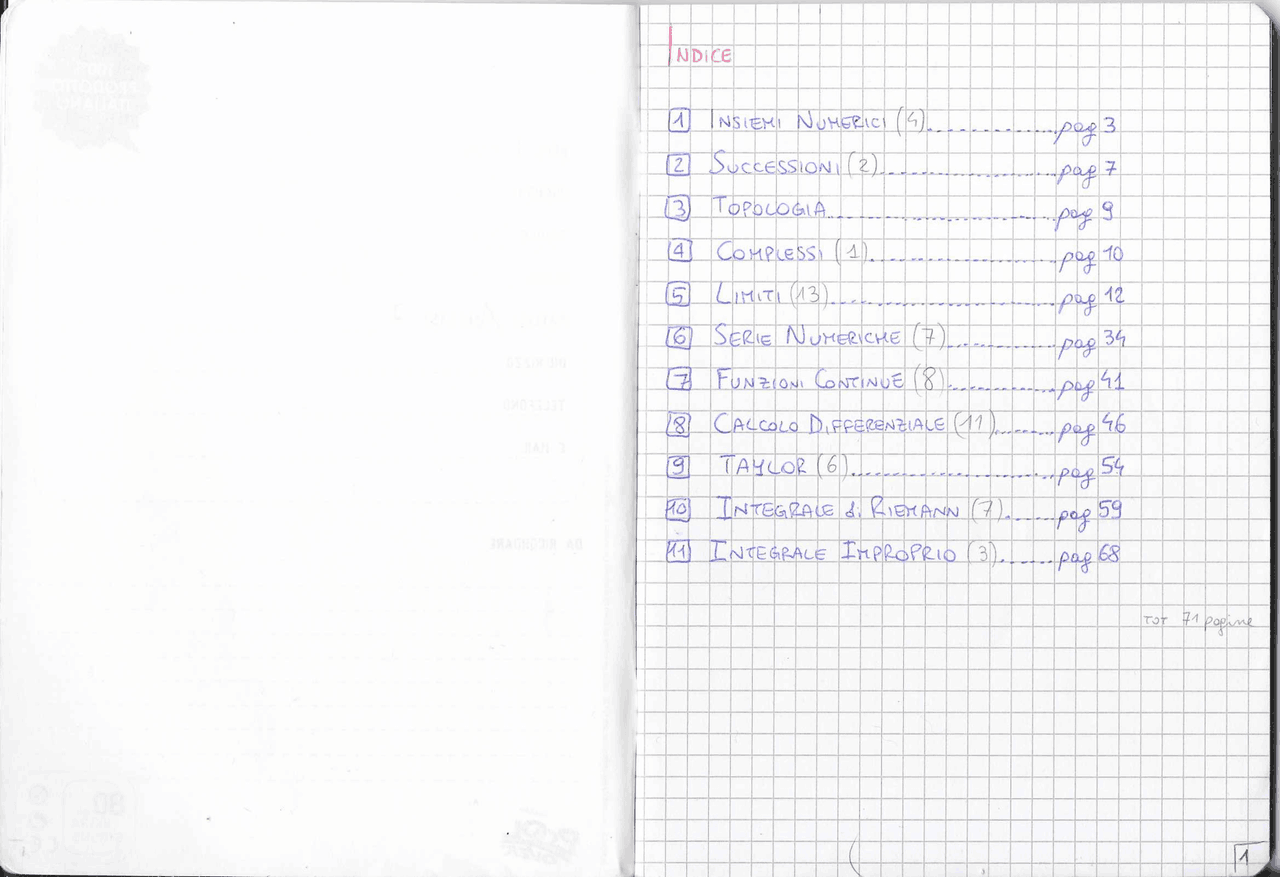 INDICE
1 INSIEMI NUMERICI (4)..............pag 3
2 SUCCESSIONI (2)..............pag 7
3 TOPOLOGIA..............pag 9
4 COMPLESSI (1)..............pag 10
5 LIMITI (13)..............pag 12
6 SERIE NUMERICHE (7)..............pag 34
7 FUNZIONI CONTINUE (8)..............pag 41
8 CALCOLO DIFFERENZIALE (11)........pag 46
9 TAYLOR (6)..............pag 54
10 INTEGRALE di RIEMANN (7)........pag 59
11 INTEGRALE IMPROPRIO (3)........pag 68
TOT 71 pagine
1